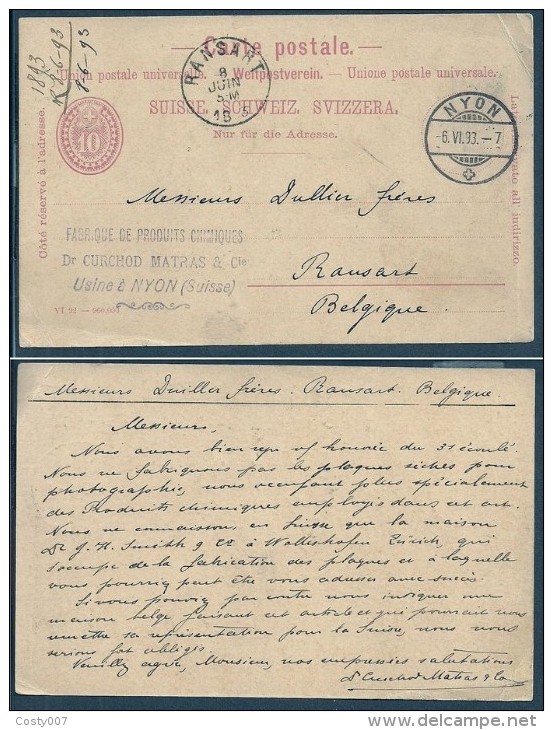 Carte postale.
Union postale universelle. Weltpostverein. Unione postale universale.
SUISSE. SCHWEIZ. SVIZZERA.
Nur für die Adresse.
Côté réservé à l'adresse.
Lato all' indirizzo
10
1893
R 8-6-93
8-6-93
RANSART
8
JUIN
5-M
NYON
-6.VI.93.-7
Messieurs Dullier frères
Ransart
Belgique.
FABRIQUE DE PRODUITS CHIMIQUES
Dr CURCHOD MATRAS & Cie
Usine à NYON (Suisse)
VI 92 — 960,000
Messieurs Duillier frères. Ransart. Belgique.
Messieurs,
Nous avons bien reçu v/ honorée du 31 écoulé.
Nous ne fabriquons pas les plaques sèches pour
photographie, nous occupant plus spécialement
des Produits chimiques employés dans cet art.
Nous ne connaissons en Suisse que la maison
Dr J. H. Smith & Cie à Wollishofen Zürich, qui
s'occupe de la fabrication des plaques et à laquelle
vous pourriez peut être vous adresser avec succès.
Si vous pouviez par contre nous indiquer une
maison belge faisant cet article et qui pourrait nous
remettre sa représentation pour la Suisse, nous vous
serions fort obligés.
Veuillez agréer, Monsieur, nos empressées salutations
Dr Curchod Matras & Co
Costy007
delcampe.net